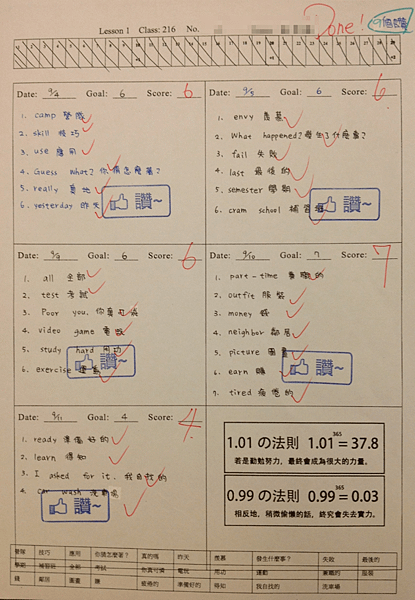 Lesson 1 Class: 216 No.
Done!
Date: 9/4 Goal: 6 Score: 6
1. camp 營隊
2. skill 技巧
3. use 應用
4. Guess what? 你猜怎麼著?
5. really 真地
6. yesterday 昨天
讚~
Date: 9/5 Goal: 6 Score: 6
1. envy 羨慕
2. What happened? 發生了什麼事?
3. fail 失敗
4. last 最後的
5. semester 學期
6. cram school 補習班
讚~
Date: 9/9 Goal: 6 Score: 6
1. all 全部
2. test 考試
3. Poor you. 你真可憐
4. video game 電玩
5. study hard 用功
6. exercise 運動
讚~
Date: 9/10 Goal: 7 Score: 7
1. part-time 兼職的
2. outfit 服裝
3. money 錢
4. neighbor 鄰居
5. picture 圖畫
6. earn 賺
7. tired 疲倦的
讚~
Date: 9/11 Goal: 4 Score: 4
1. ready 準備好的
2. learn 得知
3. I asked for it. 我自找的
4. car wash 洗車場
讚~
1.01 の法則 1.01^365 = 37.8
若是勤勉努力，最終會成為很大的力量。
0.99 の法則 0.99^365 = 0.03
相反地，稍微偷懶的話，終究會失去實力。
營隊 技巧 應用 你猜怎麼著? 真的嗎 昨天 羨慕 發生什麼事? 失敗 最後的
學期 補習班 全部 考試 你真可憐 電玩 用功 運動 兼職的 服裝
錢 鄰居 圖畫 賺 疲倦的 準備好的 得知 我自找的 洗車場